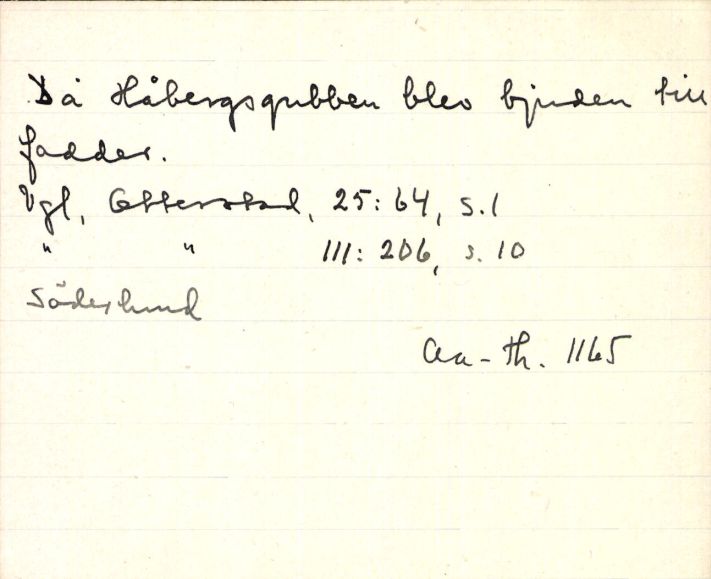 Då Håbergsgubben blev bjuden till
fadder.
Vgl, Otterstad, 25:64, s.1
" " III: 206, s. 10
Söderlund
Aa-Th. 1165